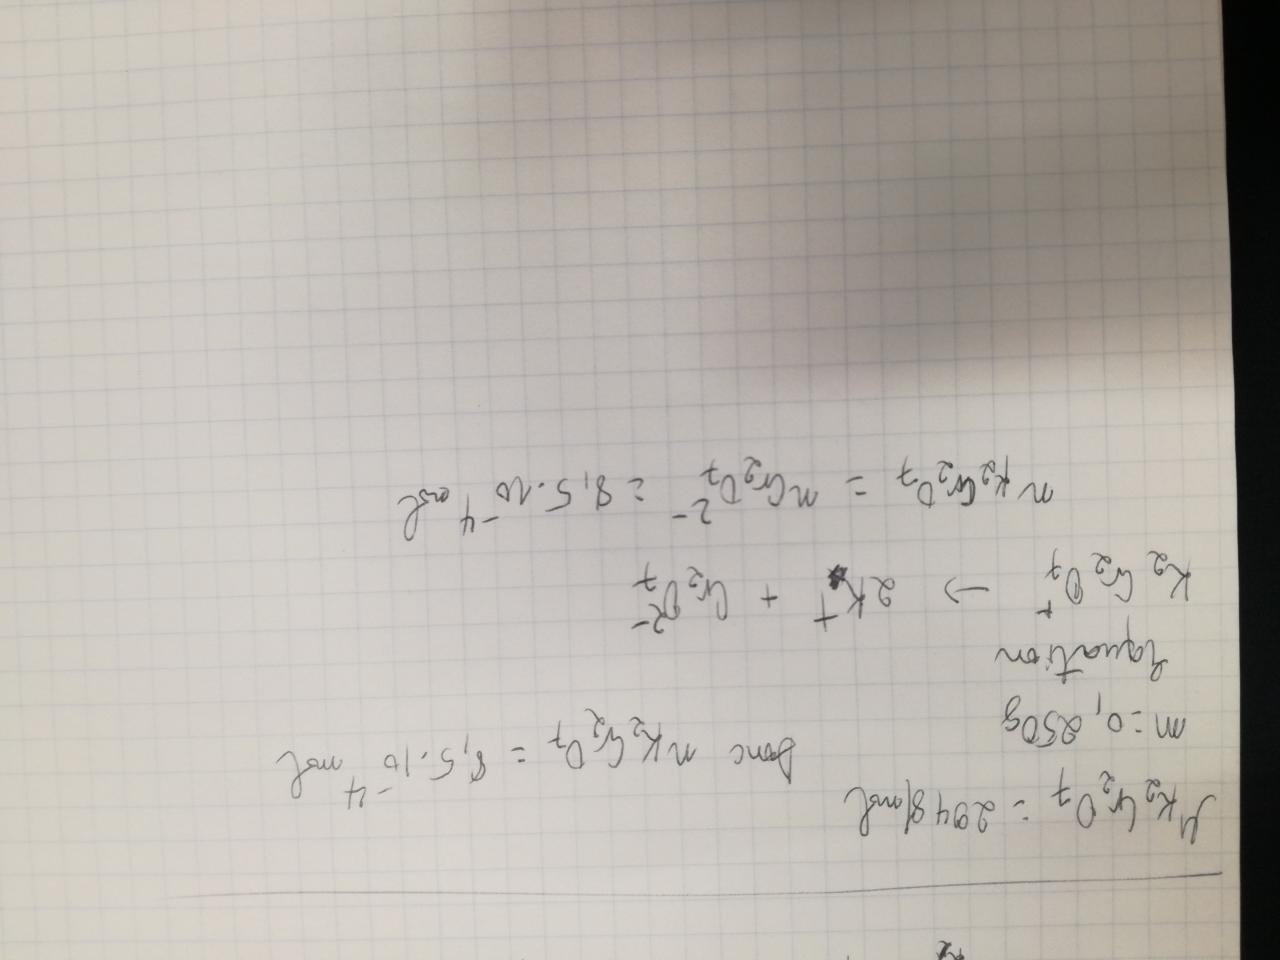 M K₂Cr₂O₇ = 294 g/mol
m = 0,250g Donc n K₂Cr₂O₇ = 8,5.10⁻⁴ mol
Equation
K₂Cr₂O₇ → 2K⁺ + Cr₂O₇²⁻
n K₂Cr₂O₇ = n Cr₂O₇²⁻ = 8,5.10⁻⁴ mol